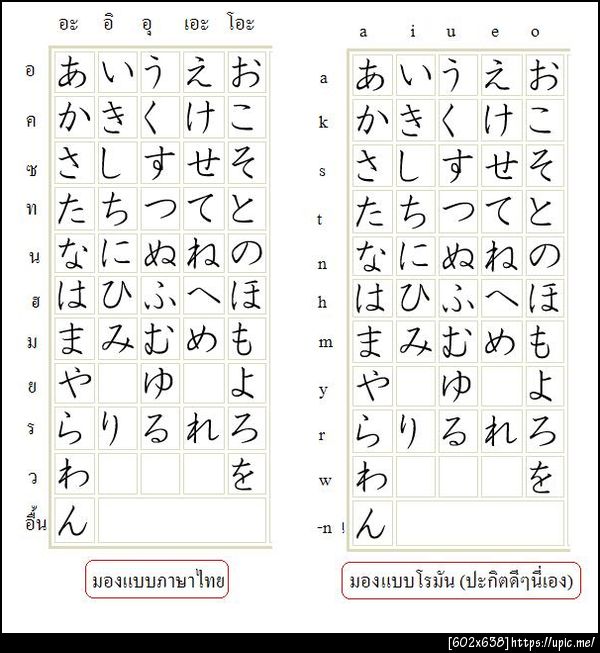 อะ อิ อุ เอะ โอะ
อ あ い う え お
ค か き く け こ
ซ さ し す せ そ
ท た ち つ て と
น な に ぬ ね の
ฮ は ひ ふ へ ほ
ม ま み む め も
ย や ゆ よ
ร ら り る れ ろ
ว わ を
อื้น ん
มองแบบภาษาไทย
a i u e o
a あ い う え お
k か き く け こ
s さ し す せ そ
t た ち つ て と
n な に ぬ ね の
h は ひ ふ へ ほ
m ま み む め も
y や ゆ よ
r ら り る れ ろ
w わ を
-n ! ん
มองแบบโรมัน (ปะกิตดีๆนี่เอง)
[602x638]https://upic.me/